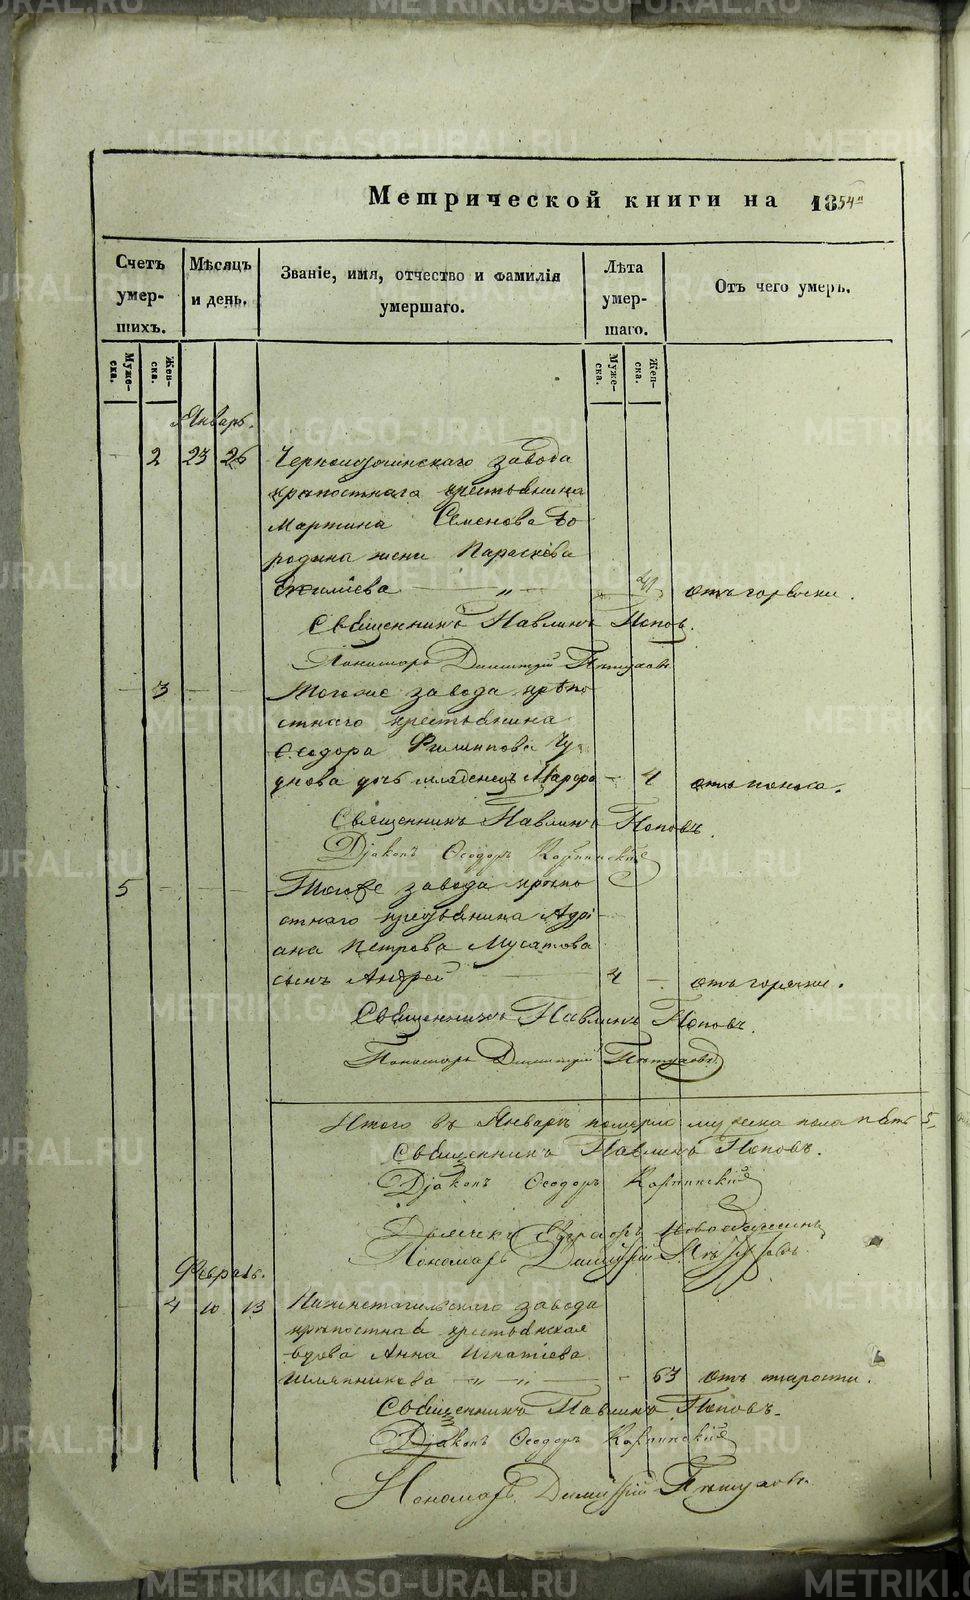 Метрической книги на 1854й
Счетъ умершихъ.
Мѣсяцъ и день.
Званіе, имя, отчество и фамилія умершаго.
Лѣта умершаго.
Отъ чего умеръ.
Муже-ска.
Жен-ска.
Муже-ска.
Жен-ска.
Январь.
2 23 26 Черноисточинскаго завода
крѣпостнаго крестьянина
Мартина Семенова Бо
родина жена Параскева
отъ горячки.
Священникъ Павлинъ Попов.
Пономарь Димитрій Пѣтуховъ
3 Тогоже завода крѣпо
стнаго крестьянина
Ѳеодора Филиппова Чу
днова дочь младенецъ Марфа 4 отъ поноса.
Священникъ Павлинъ Поповъ.
Діаконъ Ѳеодоръ Карпинскій
5 Тогоже завода крѣпо
стнаго крестьянина Адрі
ана Петрова Мусатова
сынъ Андрей 4 отъ горячки.
Священникъ Павлинъ Поповъ.
Пономарь Димитрій Пѣтуховъ
Итого въ Январѣ померло мужеска пола пять 5,
Священникъ Павлинъ Поповъ.
Діаконъ Ѳеодоръ Карпинскій
Дьячекъ Евграфъ
Пономарь Димитрій Пѣтуховъ
Февраль.
4 10 13 Нижнетагильскаго завода
крѣпостная крестьянская
вдова Анна Игнатіева
Шляпникова 63 отъ старости.
Священникъ Павлинъ Поповъ.
Діаконъ Ѳеодоръ Карпинскій
Пономарь Димитрій Пѣтуховъ
METRIKI.GASO-URAL.RU